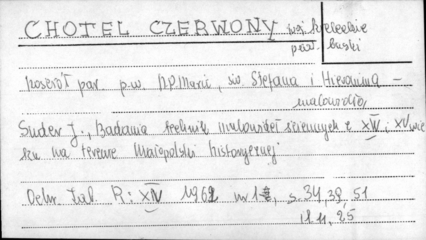 CHOTEL CZERWONY woj. kieleckie
pow. buski
Kościół par. p.w. NPMarii, św. Stefana i Hieronima –
malowidła
Suder J., Badania technik malowideł ściennych z XIV i XV wie
ku na terenie Małopolski historycznej
Ochr. Zab. R: XIV 1961 nr 1-2, s. 34, 38, 51
il 11, 25